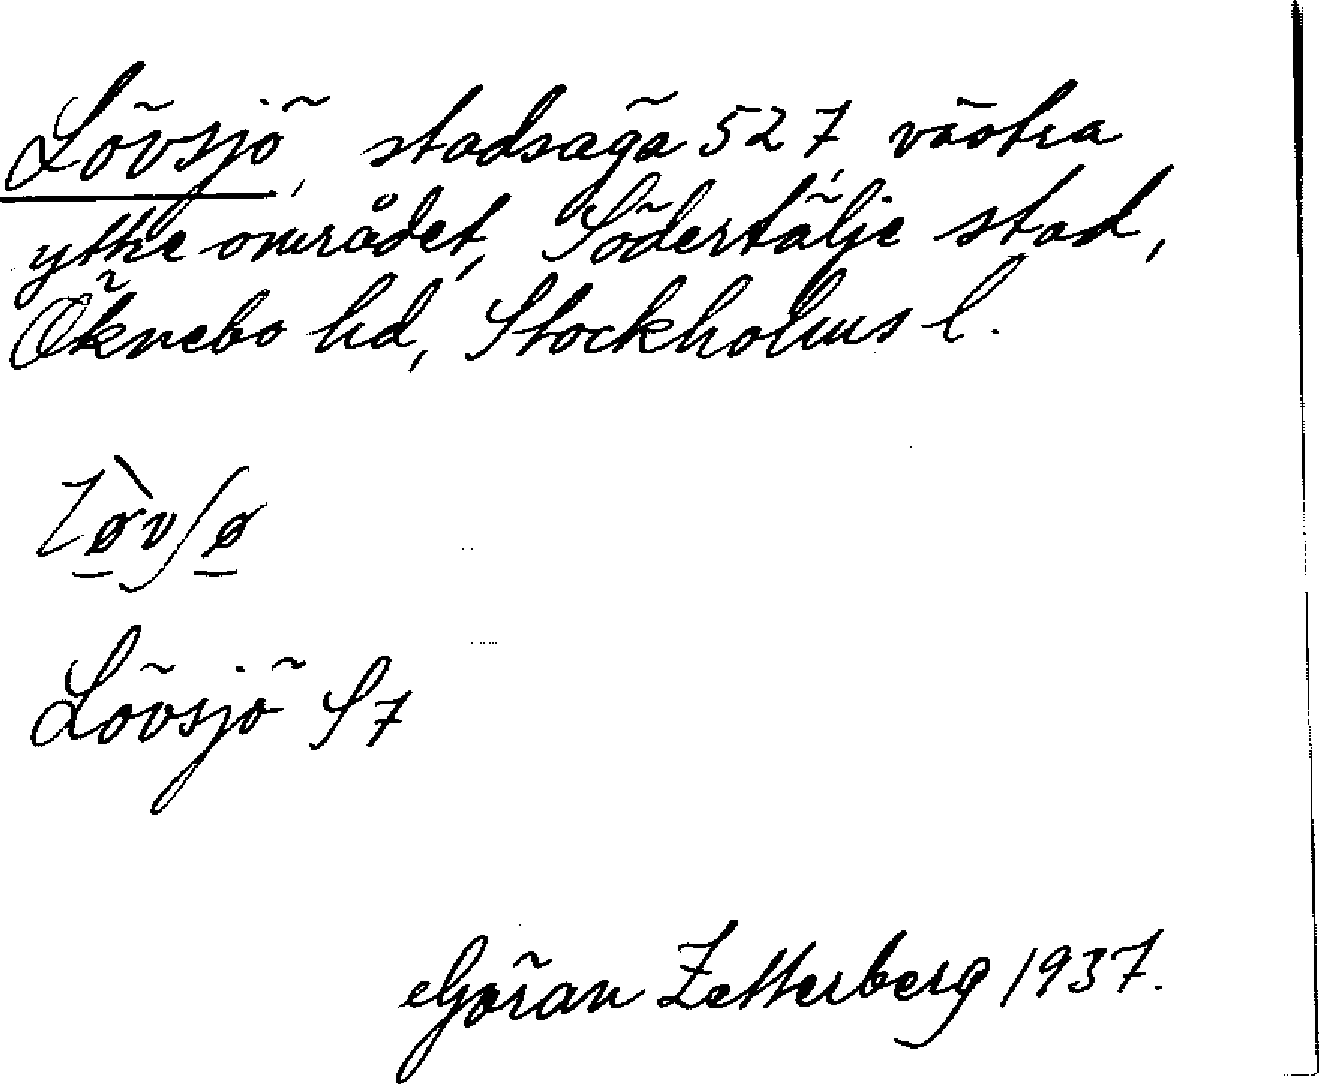 Lövsjö, stadsäga 527, västra
yttre området, Södertälje stad,
Öknebo hd, Stockholms l.
Lø̀vʃø
Lövsjö S7
Göran Zetterberg 1937.